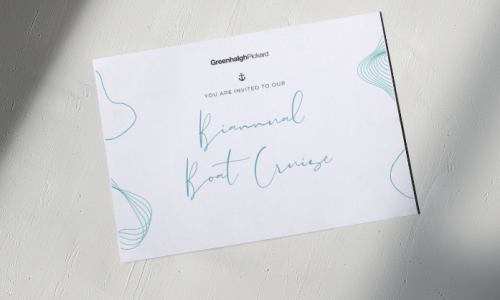 GreenhalghPickard
YOU ARE INVITED TO OUR
Biannual
Boat Cruise